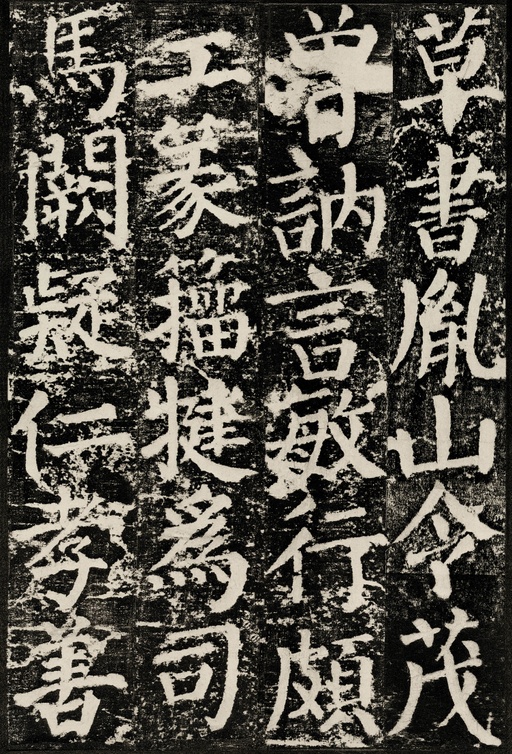 草書胤山令茂
曾訥言敏行頗
工篆籒犍為司
馬闕疑仁孝善